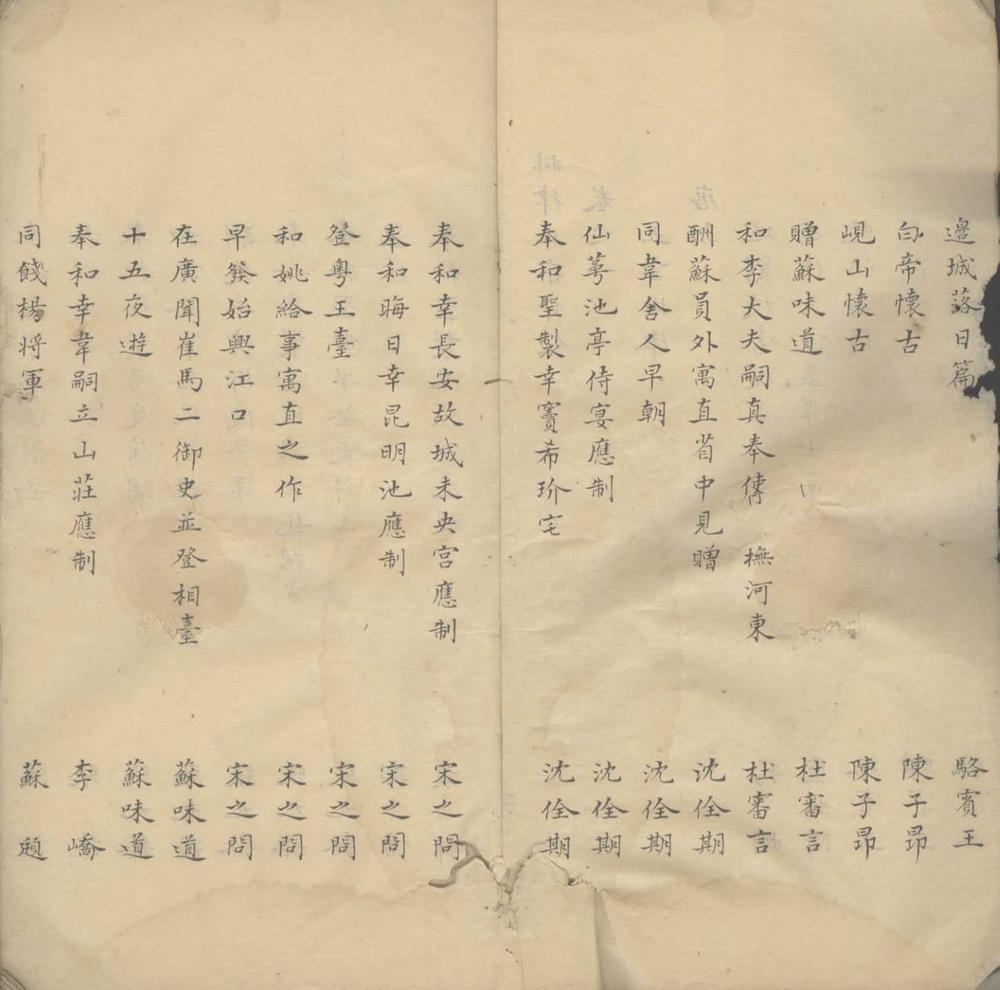 邊城落日篇 駱賓王
白帝懷古 陳子昂
峴山懷古 陳子昂
贈蘇味道 杜審言
和李大夫嗣真奉傳 撫河東 杜審言
酬蘇員外寓直省中見贈 沈佺期
同韋舍人早朝 沈佺期
仙萼池亭侍宴應制 沈佺期
奉和聖製幸竇希玠宅 沈佺期
奉和幸長安故城未央宮應制 宋之問
奉和晦日幸昆明池應制 宋之問
登粵王臺 宋之問
和姚給事寓直之作 宋之問
早發始興江口 宋之問
在廣聞崔馬二御史並登相臺 蘇味道
十五夜遊 蘇味道
奉和幸韋嗣立山莊應制 李嶠
同餞楊將軍 蘇頲